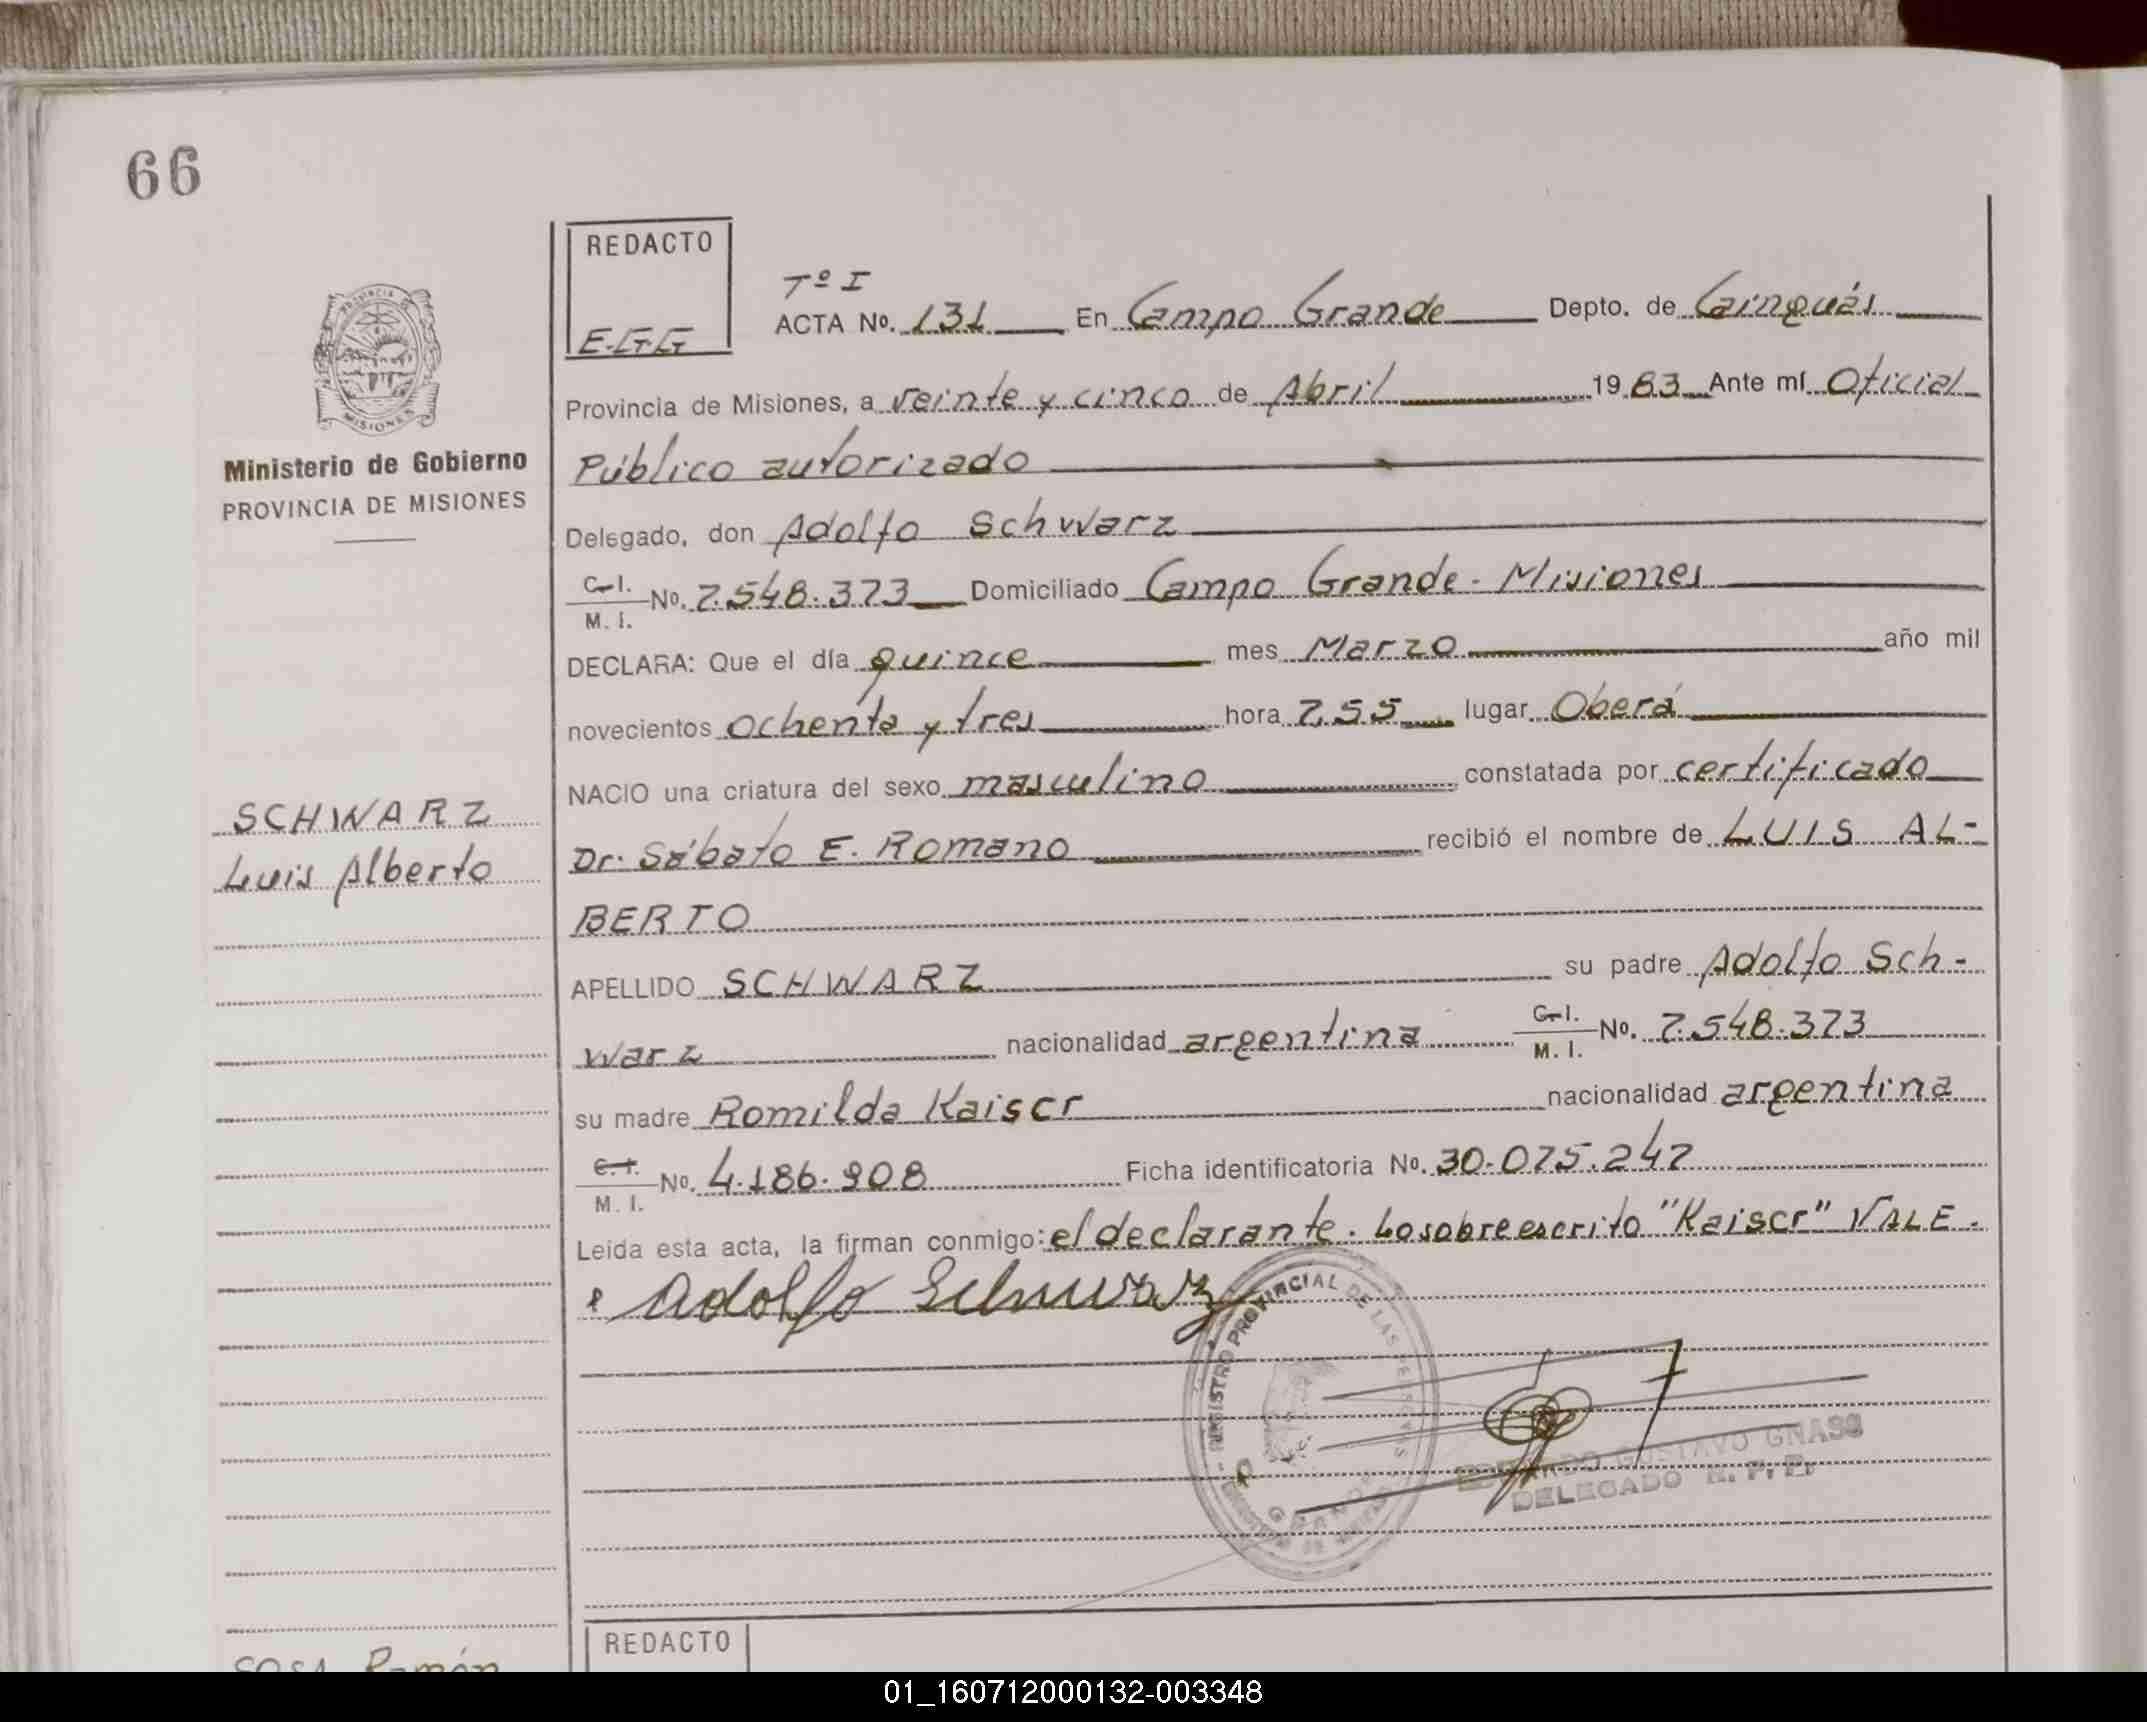 66
REDACTO
E.G.G
Tº I
ACTA No. 131 En Campo Grande Depto. de Cainguás
Provincia de Misiones, a veinte y cinco de Abril 1983 Ante mí Oficial
Público autorizado
Delegado, don Adolfo Schwarz
C.I.
M. I. No. 7.548.373 Domiciliado Campo Grande - Misiones
DECLARA: Que el día quince mes Marzo año mil
novecientos ochenta y tres hora 7,55 lugar Oberá
NACIO una criatura del sexo masculino constatada por certificado
Dr. Sábato E. Romano recibió el nombre de LUIS AL-
BERTO
APELLIDO SCHWARZ su padre Adolfo Sch-
warz nacionalidad argentina C.I. M. I. No. 7.548.373
su madre Romilda Kaiser nacionalidad argentina
C.I.
M. I. No. 4.186.908 Ficha identificatoria No. 30.075.247
Leida esta acta, la firman conmigo: el declarante. Lo sobreescrito "Kaiser" VALE.
Adolfo Schwarz
REGISTRO PROVINCIAL DE LAS PERSONAS
GRANDE
GUSTAVO GNASS
DELEGADO R. P. P.
PROVINCIA DE
MISIONES
Ministerio de Gobierno
PROVINCIA DE MISIONES
SCHWARZ
Luis Alberto
REDACTO
SOSA Ramón
01_160712000132-003348